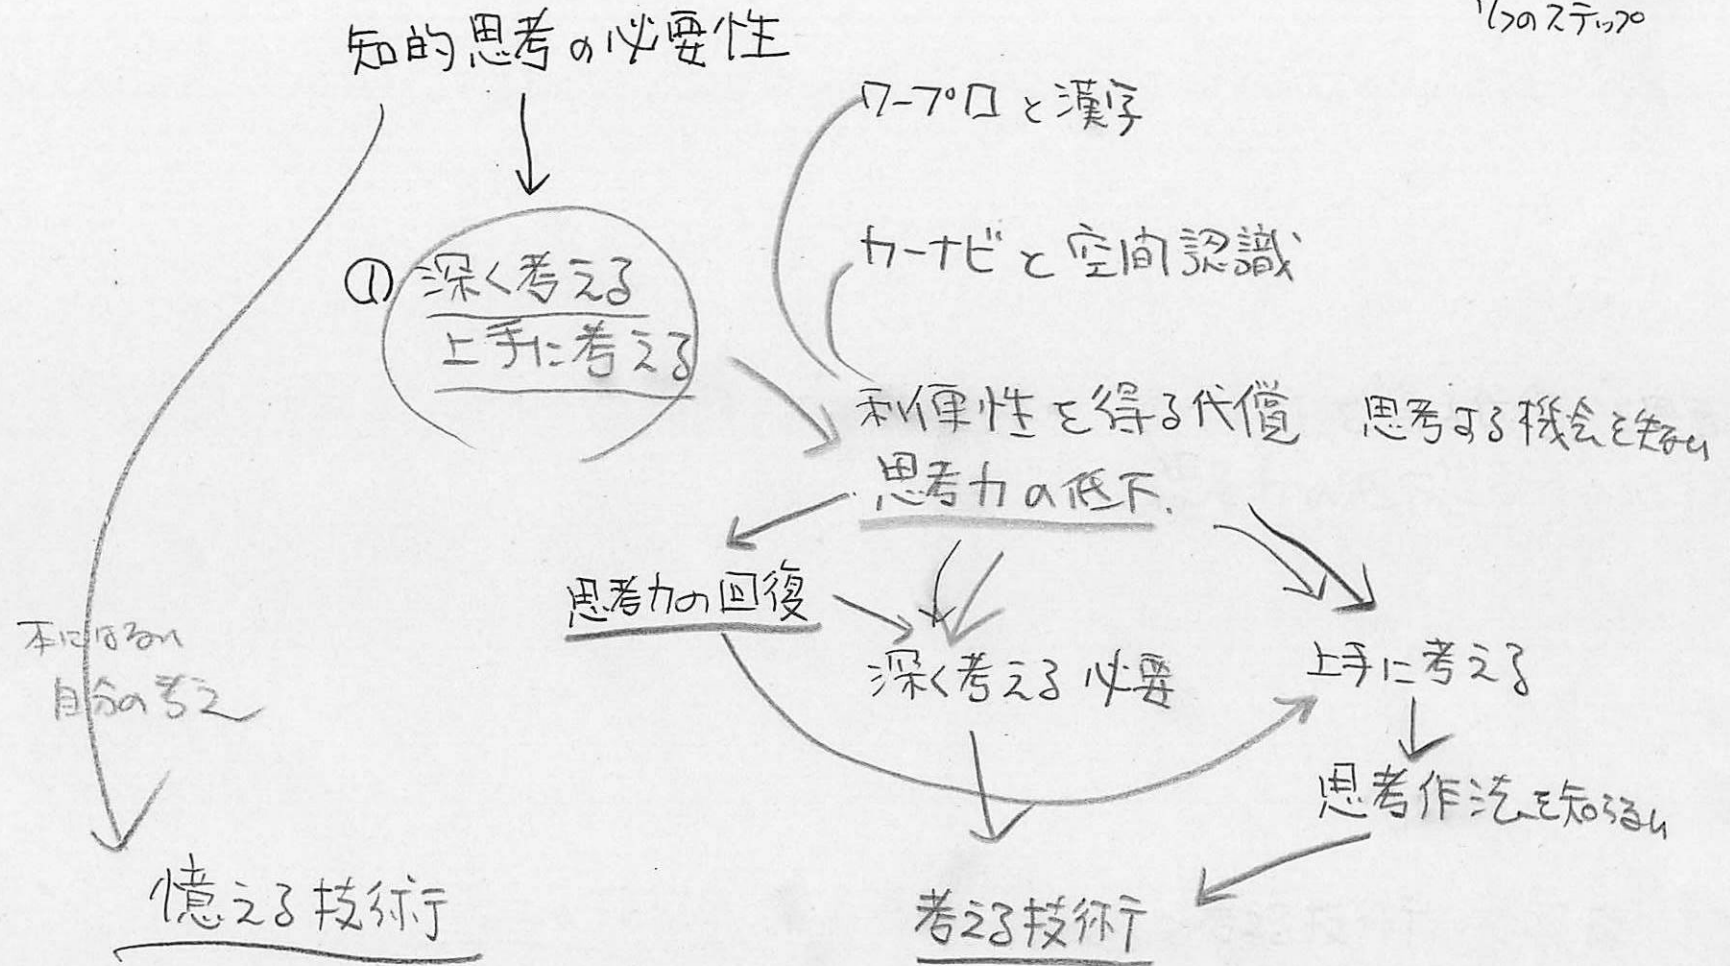 知的思考の必要性
つのステップ
ワープロと漢字
カーナビと空間認識
① 深く考える
上手に考える
利便性を得る代償 思考する機会を失ない
思考力の低下.
思考力の回復
深く考える必要
上手に考える
本にはない
自分の考え
思考作法を知らない
憶える技術
考える技術